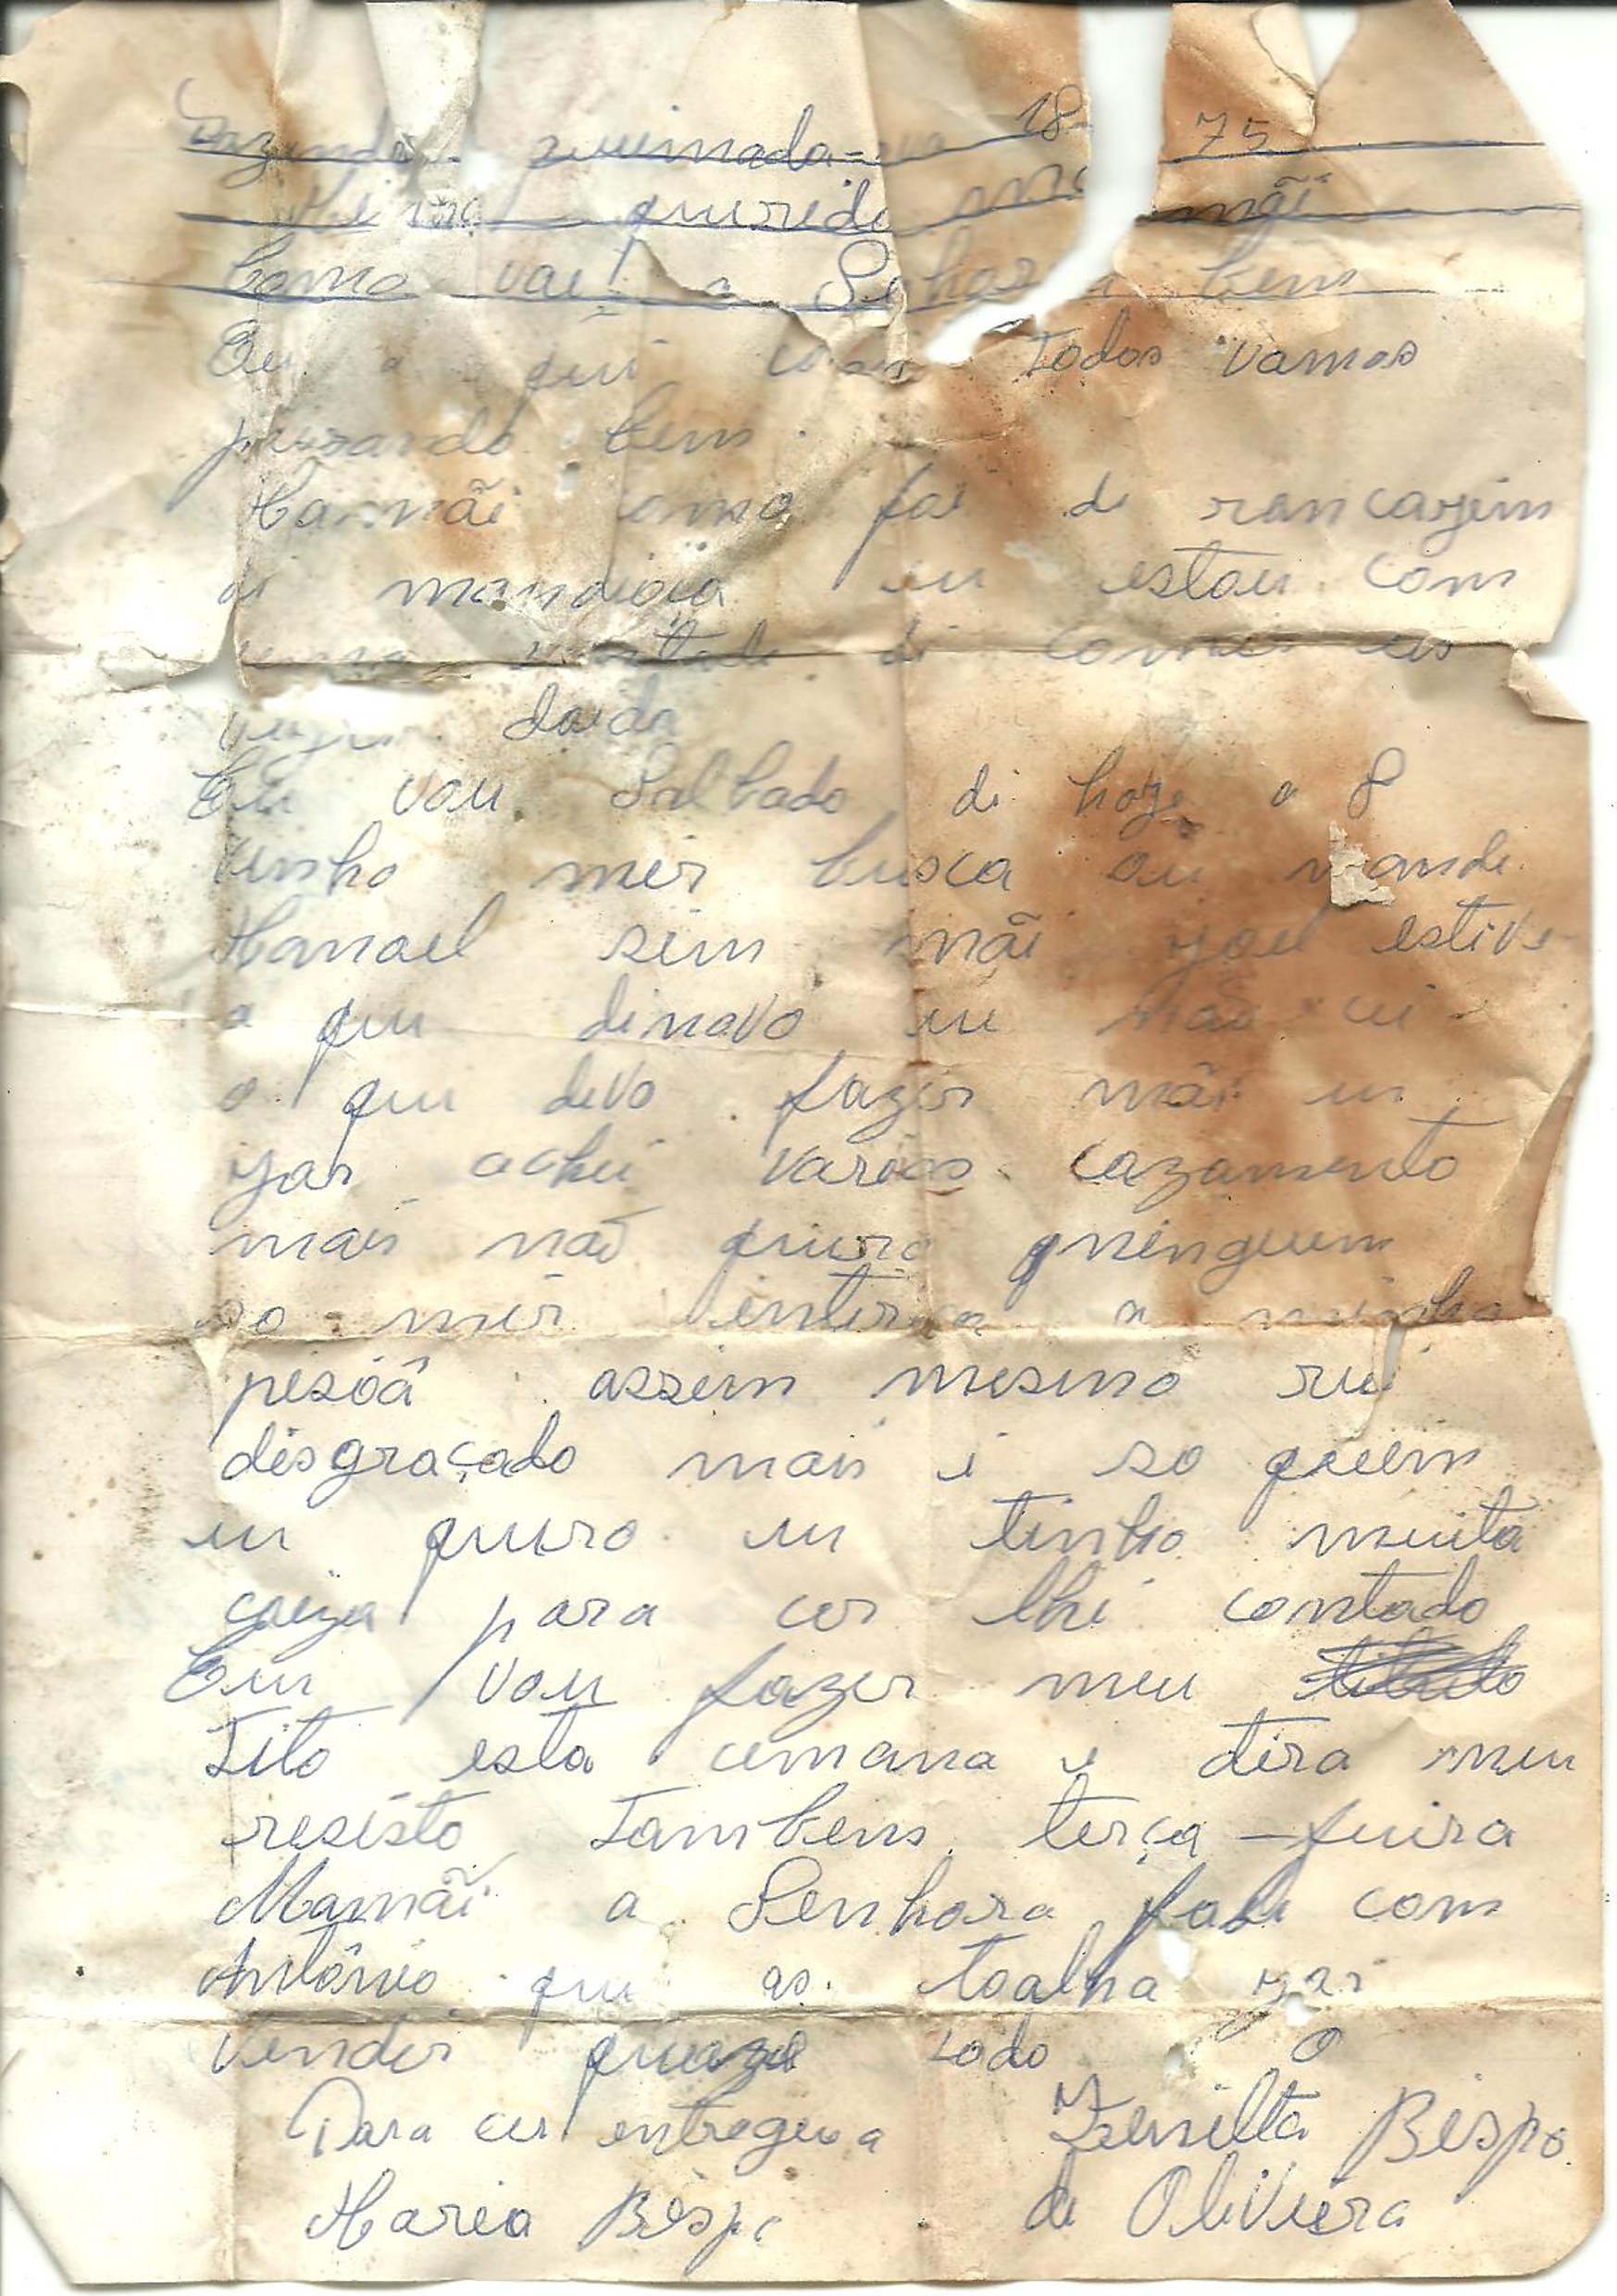 Fazenda queimada 18 75
Minha querida mãi
Como vai! a Senhora bem
Eu a qui com Todos vamos
passando bem
Mamãi como foi di rancazem
di mandioca eu estou com
vontade di comer
doida
Eu vou Salbado di hoze a 8
venho mir busca ou mande
Manoel sim mãi yoel estive
a qui dinovo eu não cei
o qui devo fazer mãi eu
yar achei varios cazamento
mais não quero ninguem
so mir interca a minha
pesoâ assim mesmo rui
disgraçado mais i so quem
eu quero eu tinho muita
coiza para cer lhi contado
Eu vou fazer meu
Tito esta cemana i tira meu
resisto Tambem terça-feira
Mamãi a Senhora fale com
Antônio qui as toalha yar
vendir quaze todo
Para cer entregue a Zenilta Bispo
Maria Bispo de Oliveira